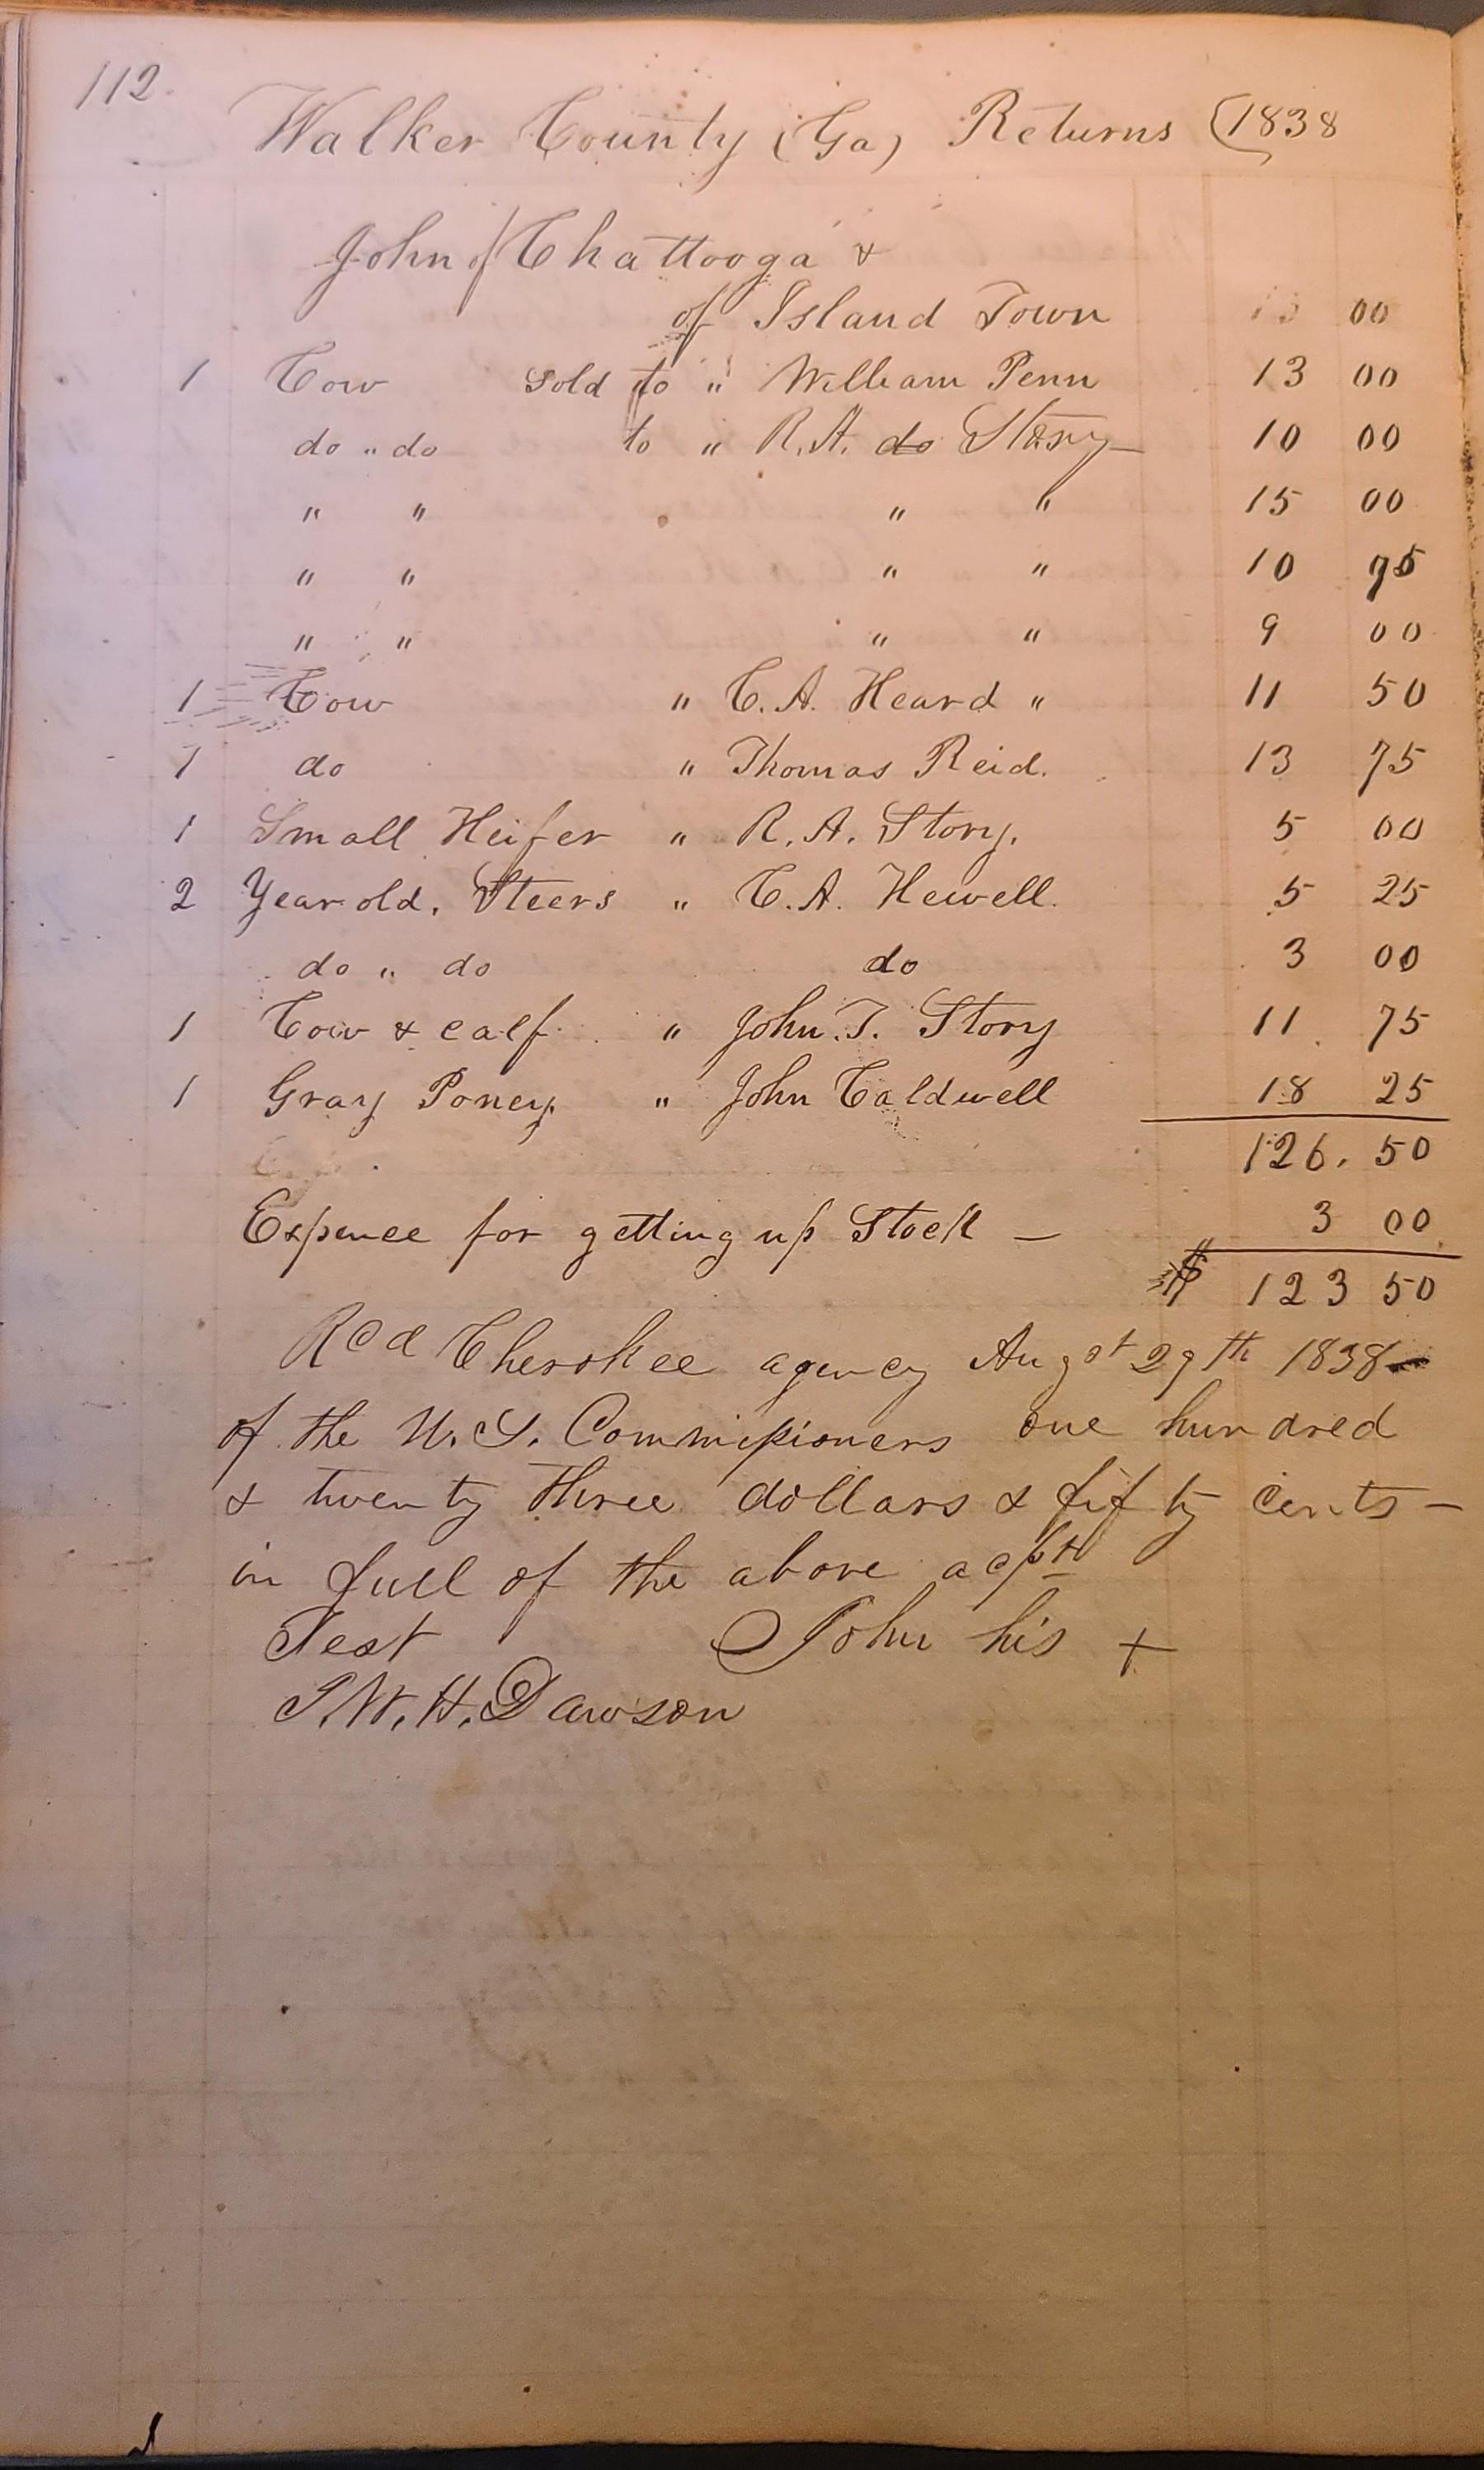 112.
Walker County (Ga) Returns (1838
John of Chattooga &
of Island Town 13 00
1 Cow sold to " William Penn 13 00
do " do to " R. A. do Story 10 00
" " " " 15 00
" " " " 10 75
" " " " 9 00
1 Cow " C. A. Heard " 11 50
1 do " Thomas Reid. 13 75
1 Small Heifer " R. A. Story. 5 00
2 Year old. Steers " C. A. Hewell. 5 25
do " do do 3 00
1 Cow & calf " John. T. Story 11 75
1 Gray Poney. " John Caldwell 18 25
126. 50
Expence for getting up Stock — 3 00
$ 123 50
Rcd Cherokee agency Augst 29th 1838
of the U. S. Commissioners one hundred
& twenty three dollars & fifty cents —
in full of the above
Test John his +
T. W. H. Dawson